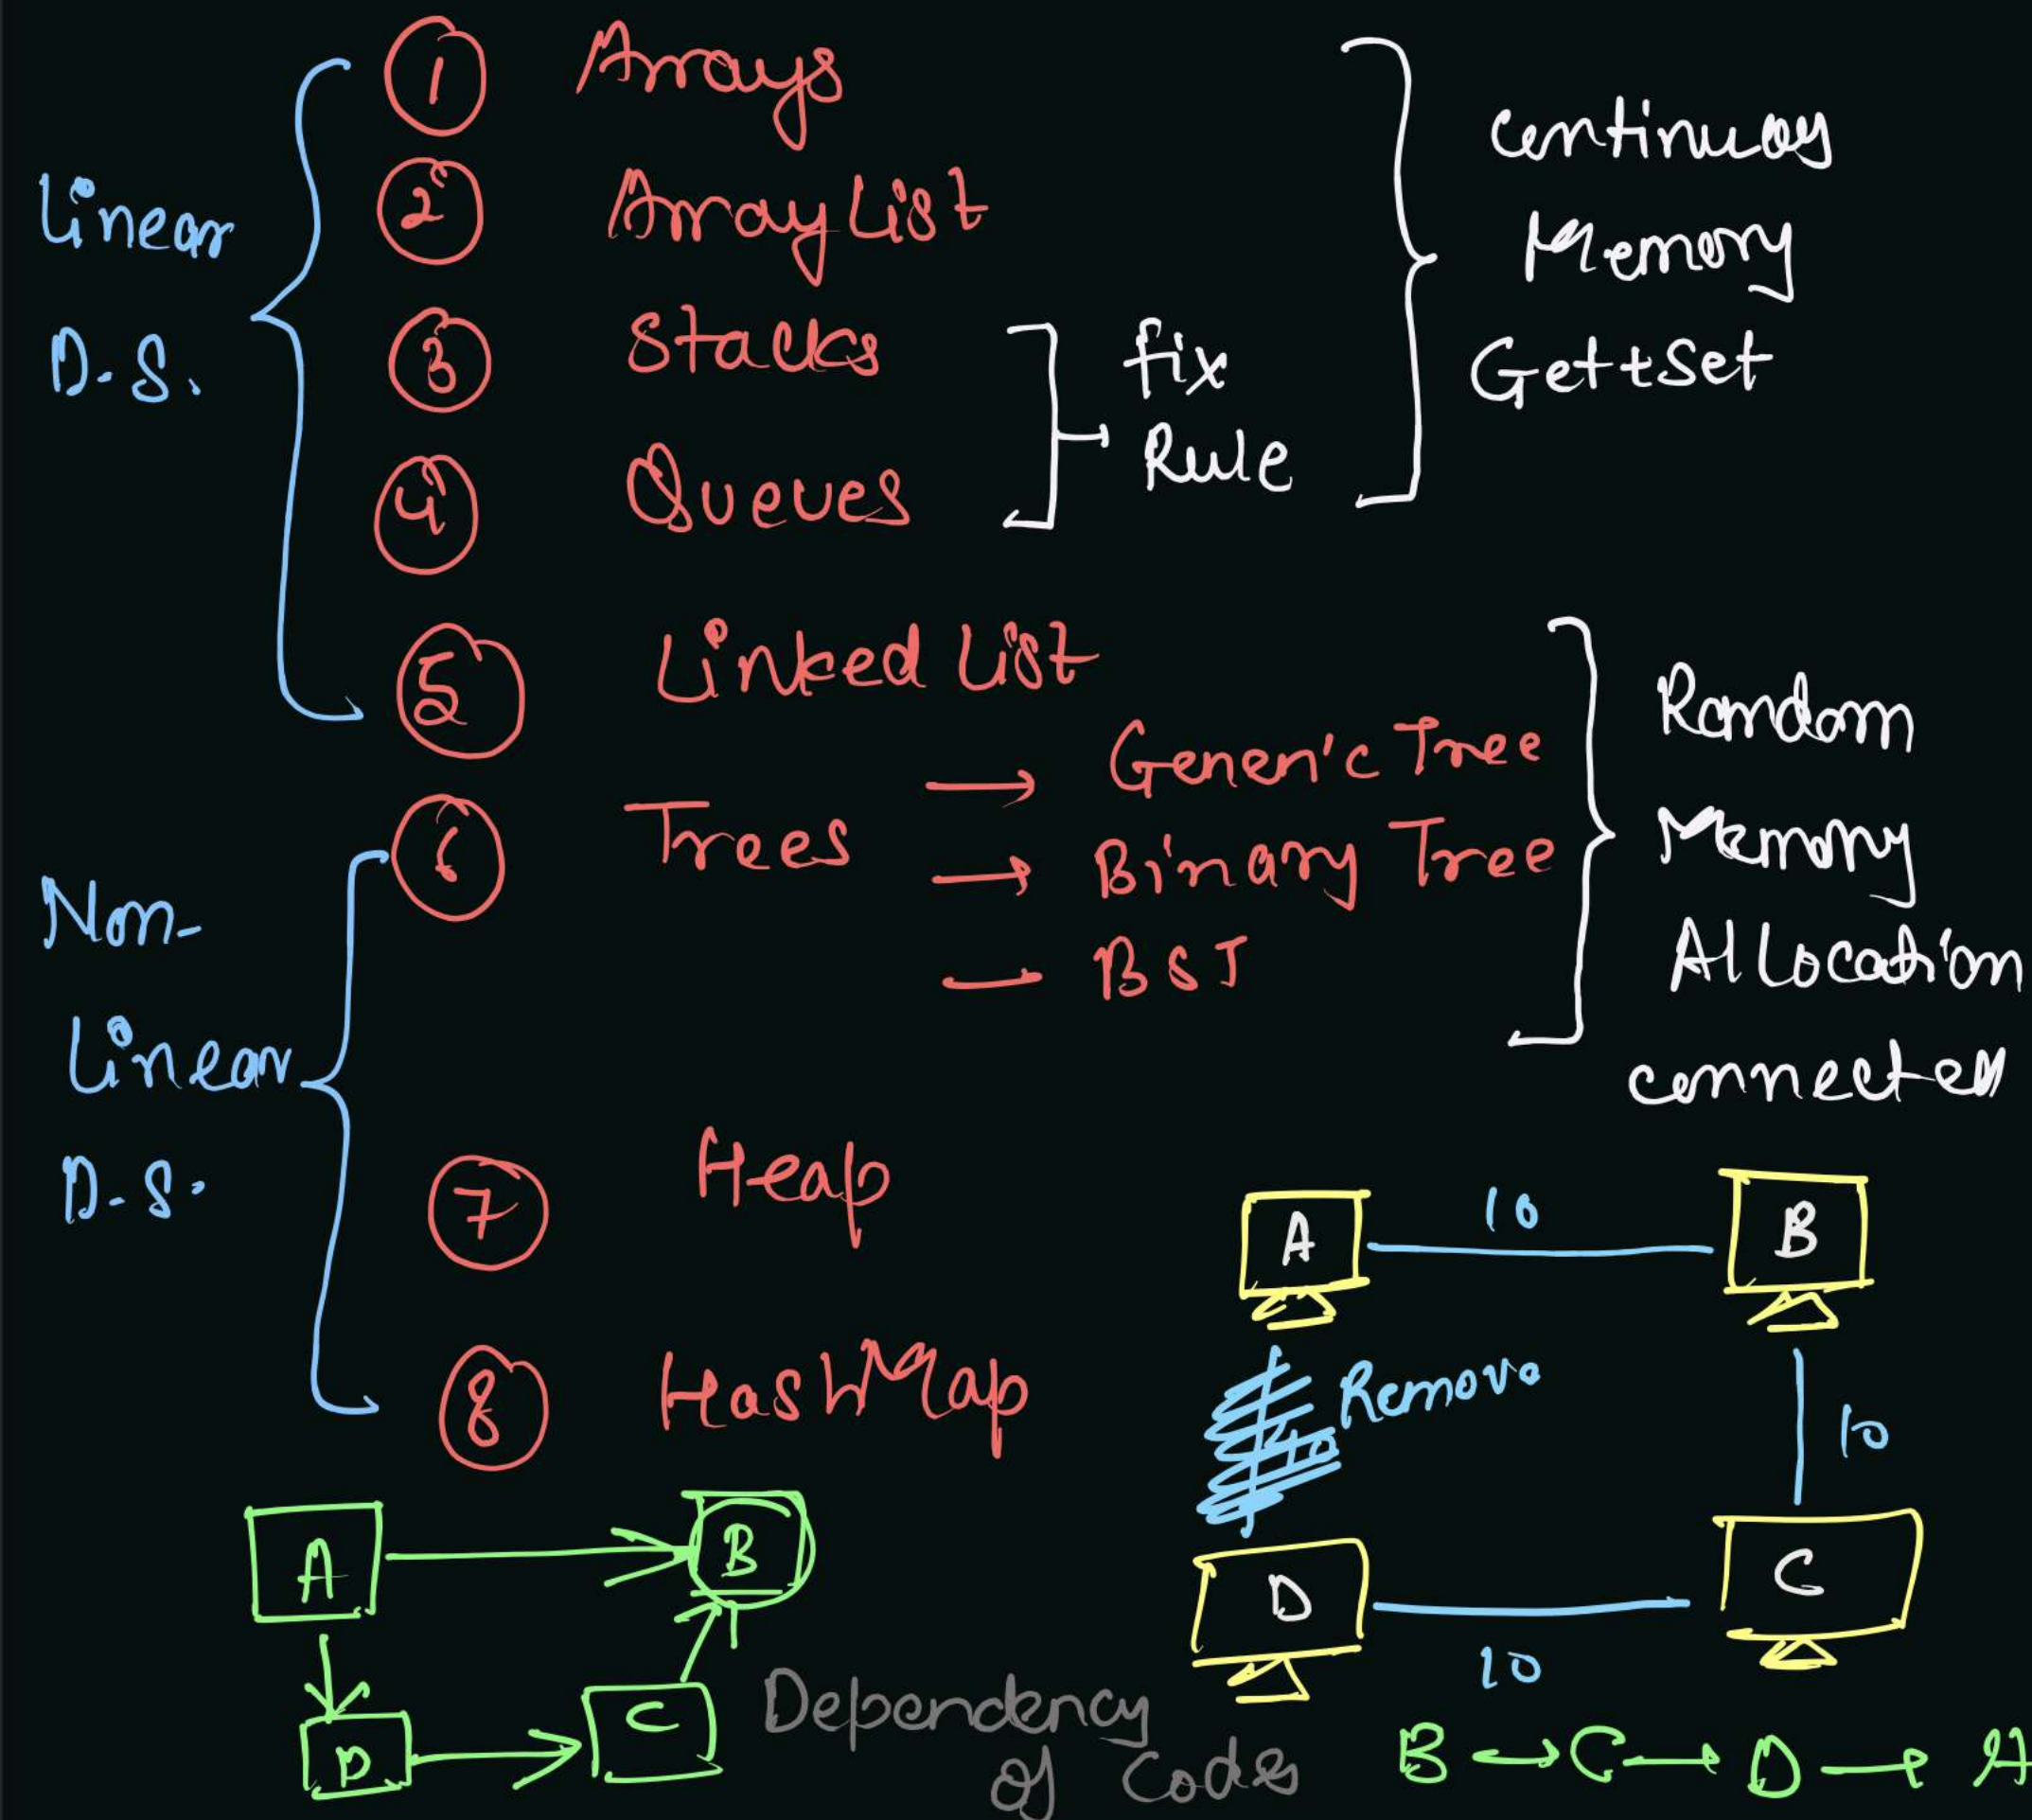 Linear
D.S.
1 Arrays
2 ArrayList
3 Stacks
4 Queues
fix
Rule
Continuos
Memory
Get+Set
5 Linked List
6 Trees → Generic Tree
→ Binary Tree
— BST
Random
Memory
Allocation
connected
Non-
Linear
D.S.
7 Heap
8 HashMap
A 10 B
Remove
10
D 10 C
A B
D C
Dependency
of Codes
B → C → D → A